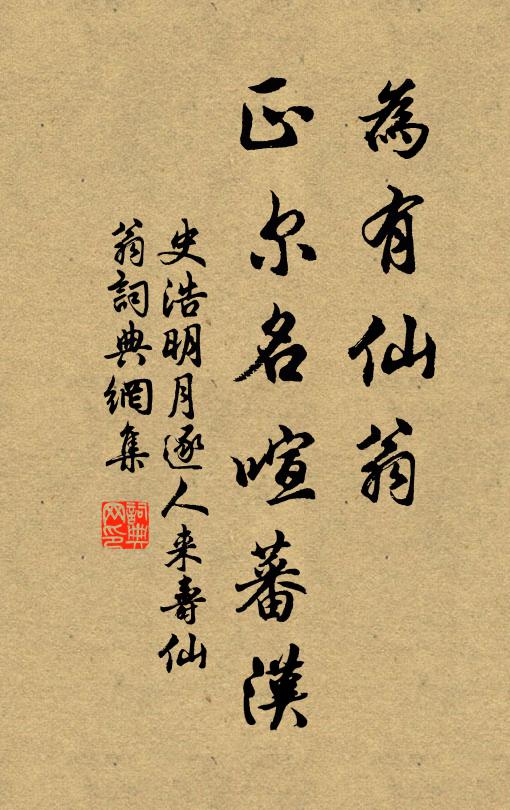 為有仙翁
正尔名喧蕃漢
史浩明月逐人来壽仙
翁詞典網集
詞典网印